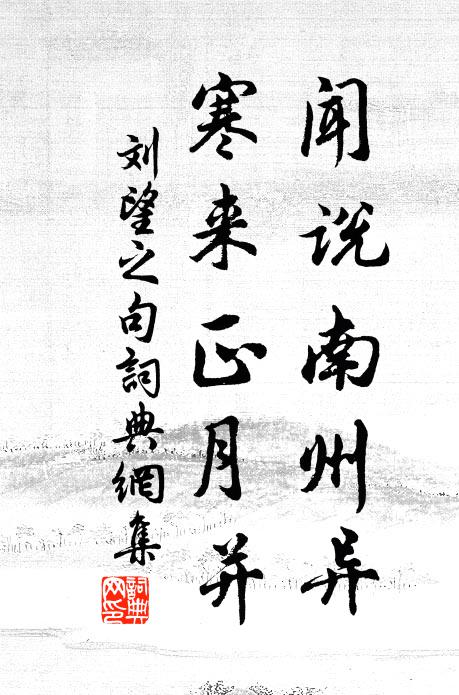 闻说南州异
寒来正月并
刘望之句詞典網集
詞典网印